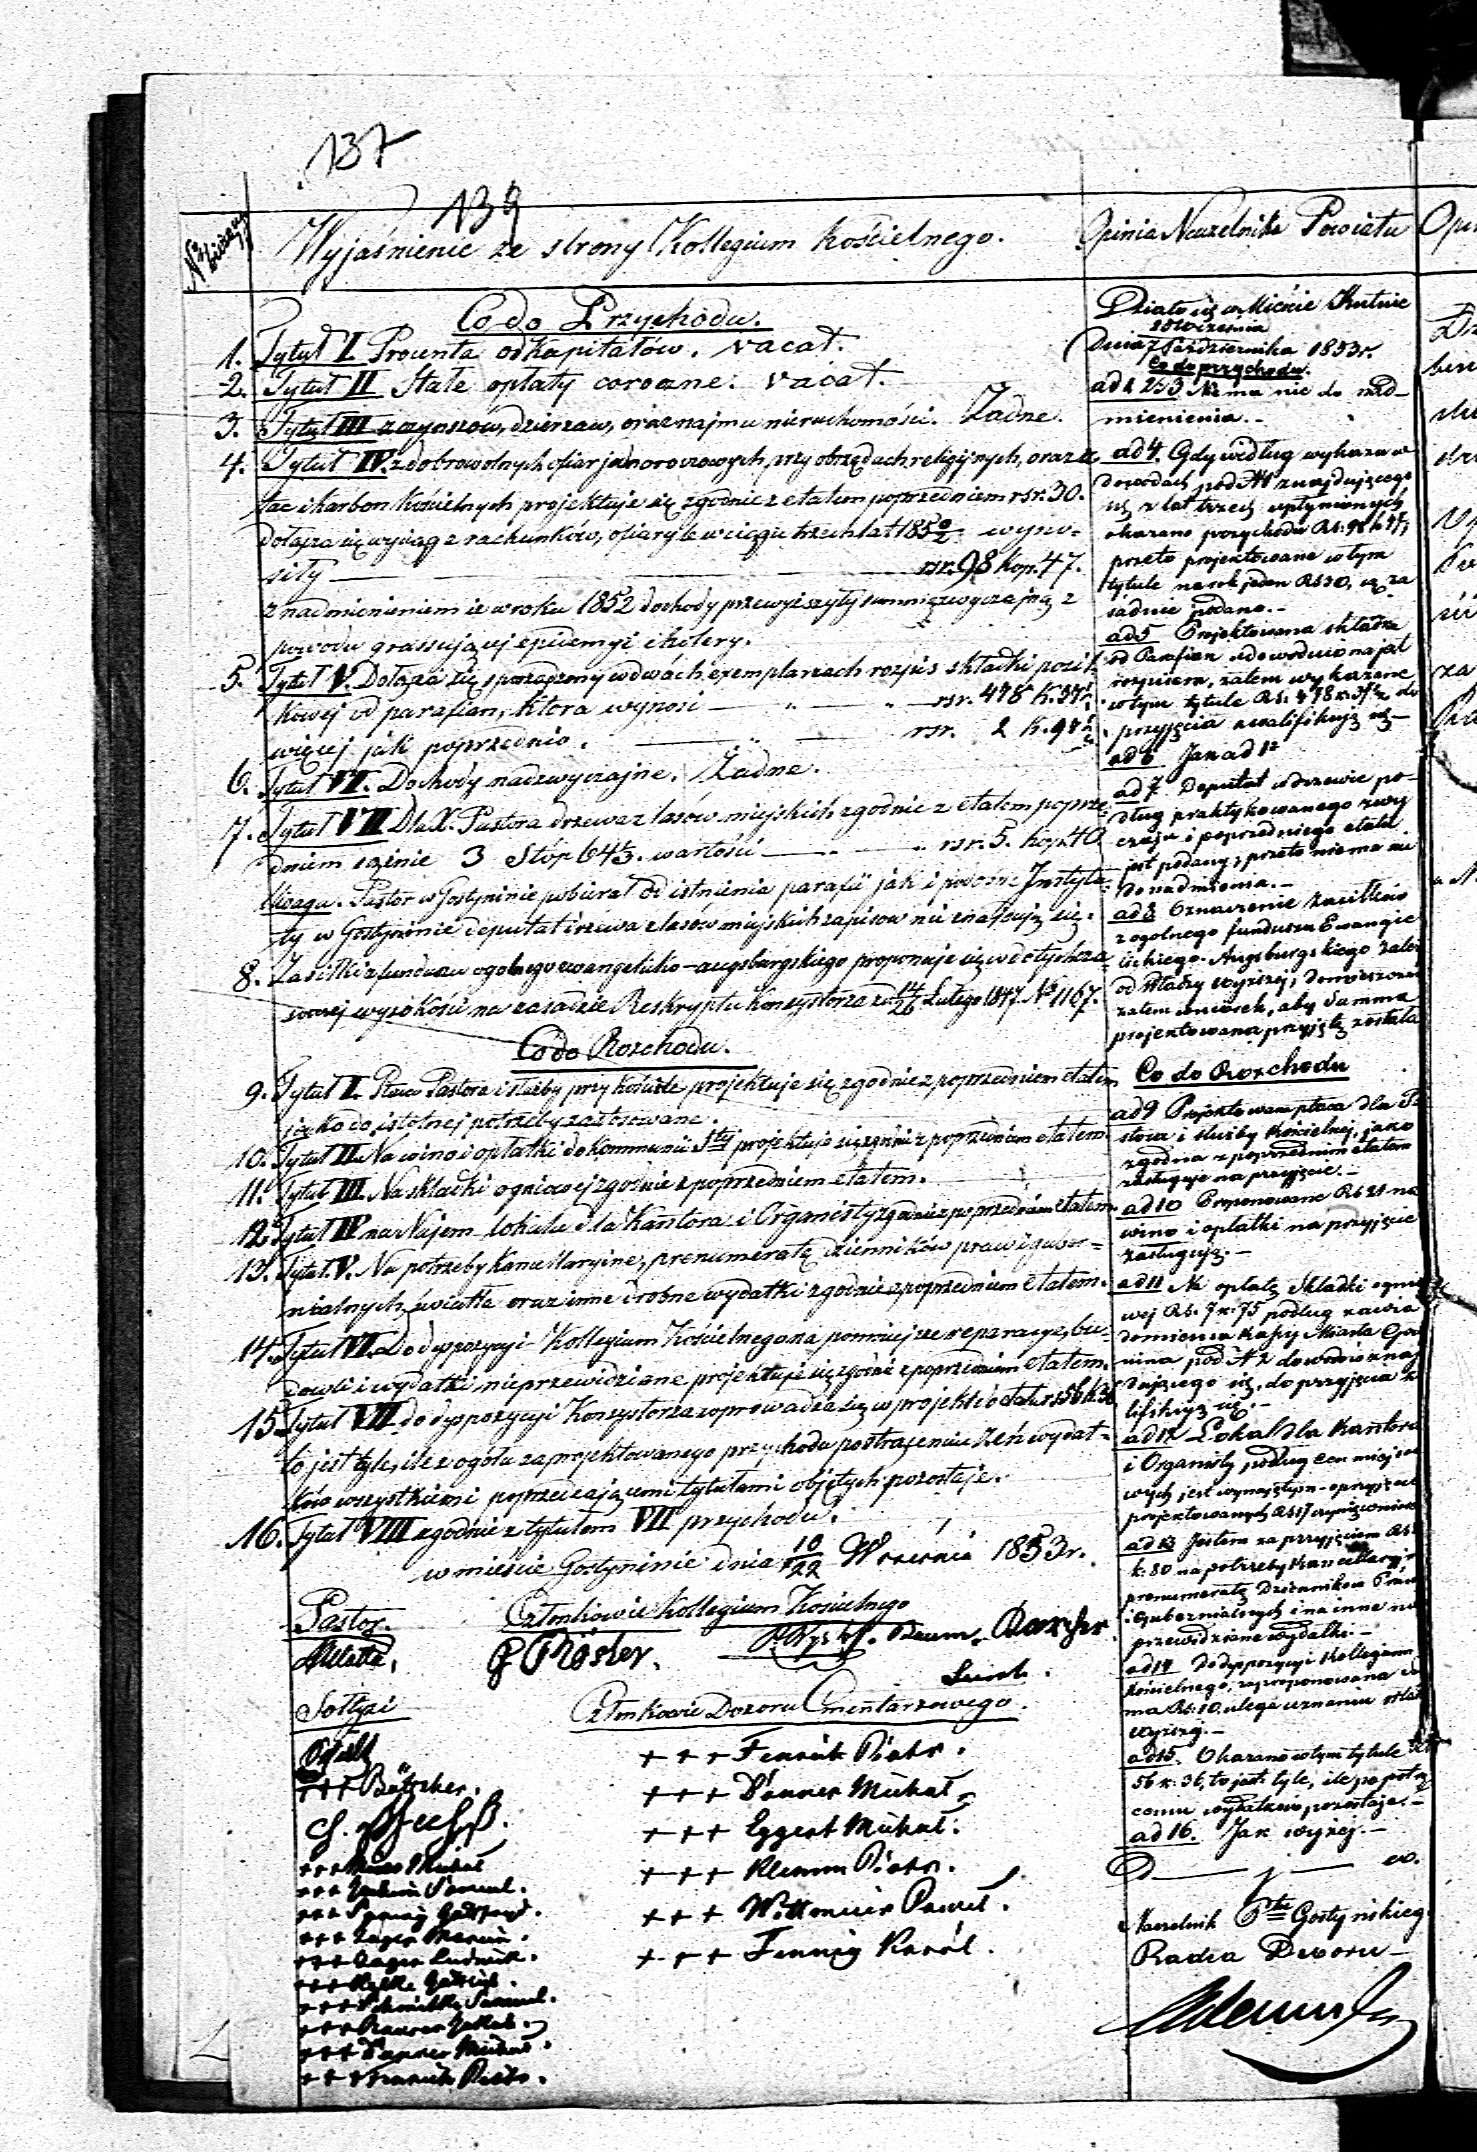 137
139
Nr bieżący
Wyjaśnienie ze strony Kollegium Kościelnego.
Co do Przychodu.
1. Tytuł I Procenta od Kapitałów. vacat.
2. Tytuł II Stałe opłaty coroczne. vacat.
3. Tytuł III z czynszów, dzierżaw, oraz najmu nieruchomości. Żadne.
4. Tytuł IV. z dobrowolnych ofiar jednorazowych, przy obrzędach religijnych, oraz z
tac i karbon Kościelnych projektuje się zgodnie z etatem poprzedniem rsr. 30.
dołącza się wyciąg z rachunków, ofiary te w ciągu trzech lat 1850/2 wyno-
siły rsr. 98 kop. 47.
z nadmienieniem iż w roku 1852 dochody przewyższyły summę zwyczajną z
powodu grassującej epidemyi cholery.
5. Tytuł V. Dołącza się sporządzony w dwóch exemplarzach rozpis składki
kowej od parafian, która wynosi rsr. 478 k. 37½
więcej jak poprzednio. rsr. 2 k. 97½
6. Tytuł VI. Dochody nadzwyczajne. Żadne.
7. Tytuł VII Dla X. Pastora drzewa z lasów miejskich zgodnie z etatem poprze-
dniem sążnie 3 Stóp 64⅘. wartości rsr. 5. kop. 40
Uwaga. Pastor w Gostyninie pobierał od istnienia parafii jak i Instytu-
ty w Gostyninie deputat drzewa z lasów miejskich zapisów nie znajduje się.
8. Zasiłki z funduszu ogólnego ewangelicko-augsburgskiego proponuje się w dotychcza-
sowej wysokości na zasadzie Reskryptu Konsystorza z d 14/26 Lutego 1847 No 1167.
Co do Rozchodu.
9. Tytuł I. Płaca Pastora i służby przy Kościele projektuje się zgodnie z poprzedniem etatem
jako do istotnej potrzeby zastosowane.
10. Tytuł II. Na wino i opłatki do Kommunii Stej projektuje się zgodnie z poprzedniem etatem.
11. Tytuł III. Na składki ogniowej zgodnie z poprzedniem etatem.
12. Tytuł IV na Najem lokalu dla Kantora i Organisty zgodnie z poprzedniem etatem
13. Tytuł V. Na potrzeby Kancellaryjne, prenumeratę dzienników praw i guber-
nialnych, światła oraz inne drobne wydatki zgodnie z poprzedniem etatem.
14. Tytuł VI. Do dyspozycyi Kollegium Kościelnego na pomniejsze reparacye, bu-
dowli i wydatki nieprzewidziane projektuje się zgodnie z poprzedniem etatem.
15. Tytuł VII do dyspozycyi Konsystorza zaprowadza się w projekcie etatu rs 56 k 36
to jest tyle, ile z ogółu zaprojektowanego przychodu po strąceniu zeń wydat-
ków wszystkiemi poprzedzającemi tytułami objętych pozostaje.
16. Tytuł VIII zgodnie z tytułem VII przychodu.
w mieście Gostyninie dnia 10/22 Września 1853 r.
Pastor.
Członkowie Kollegium Kościelnego
G Rösler.
Sołtysi
Członkowie Dozoru Cmentarzowego.
+++ Bötscher.
+++ Fenrich Piotr.
+++ Danner Michał.
+++ Eggert Michał.
+++ Klemm Piotr.
+++ Wittmeier Paweł.
+++ Fennig Karól.
+++ Danner Michał.
+++ Fenrich Piotr.
Opinia Naczelnika Powiatu
Działo się w Mieście Kutnie
Dnia 7 Października 1853 r.
Co do przychodu.
ad 1 2 i 3 Nie ma nic do nad-
mienienia.-
ad 4. Gdy według wykazu w
dowodach pod No 1 znajdującego
się z lat trzech upłynionych
okazano przychodu Rs. 98 k 47,
przeto projektowane w tym
tytule na rok jeden Rs 30, są za
sadnie podane.-
ad 5 Projektowana składka
od Parafian udowodniona jest
rozpisem, zatem wykazane
w tym tytule Rs. 478 k. 37½ do
przyjęcia kwalifikują się-
ad 6 Jak ad 1o
ad 7 Deputat w drzewie po-
dług praktykowanego zwy
czaju i poprzedniego etatu
jest podany, przeto nie ma nic
do nadmienienia.-
ad 8 Oznaczenie zasiłków
z ogólnego funduszu Ewangie
lickiego-Augsburgskiego zależy
od Władzy wyższej,
zatem wniosek, aby summa
projektowana przyjętą została
Co do Rozchodu
ad 9 Projektowana płaca dla Pa
stora i służby Kościelnej, jako
zgodna z poprzedniem etatem
zasługuje na przyjęcie.-
ad 10 Proponowane Rs 21 na
wino i opłatki na przyjęcie
zasługują.-
ad 11 Na opłatę Składki ognio
wej Rs. 7 k. 75 podług zawia
domienia Kassy Miasta Gosty
nina pod No 2 dowodów znaj
dującego się, do przyjęcia kwa
lifikują się.-
ad 12 Lokal dla Kantora
i Organisty, podług cen miejsco
wych jest wynajętym
projektowanych Rs 17
ad 13 Jestem za przyjęciem Rs
k. 80 na potrzeby Kancellaryj
prenumeratę Dzienników Praw
i Gubernialnych i na inne nie
przewidziane wydatki.-
ad 14 Do dyspozycyi Kollegium
Kościelnego, zaproponowana su
ma Rs. 10. ulega uznaniu Wła
wyższej.-
ad 15. Okazano w tym tytule Rs
56 k. 36, to jest tyle, ile po potrą
ceniu wydatków pozostaje.-
ad 16. Jak wyżej.-
Naczelnik Ptu Gostyńskieg
Radca Dworu